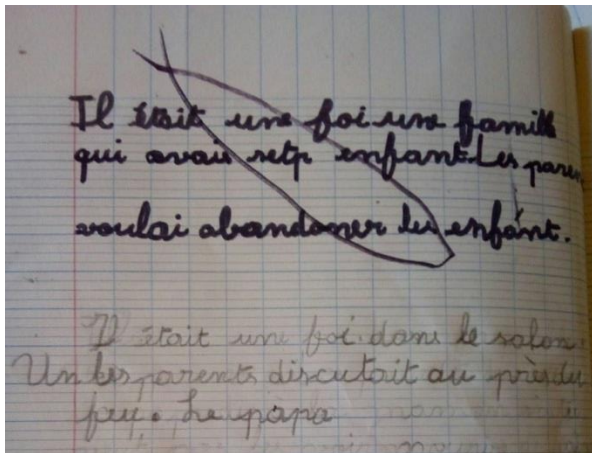 Il était une foi une famille
qui avais setp enfant Les paren
voulai abandoner les enfant.
Il était une foi. dans le salon.
Un les parents discutait au près du
feu. Le papa